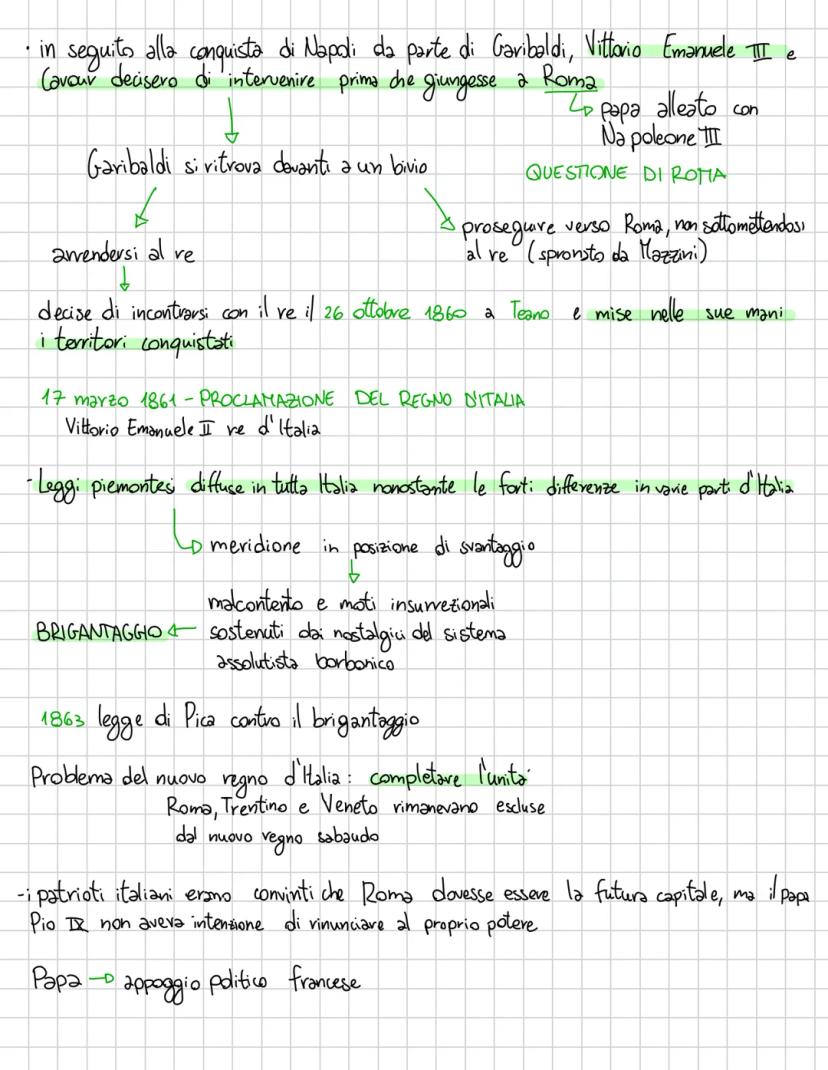 · in seguito alla conquista di Napoli da parte di Garibaldi, Vittorio Emanuele III e
Cavour decisero di intervenire prima che giungesse a Roma
papa alleato con
Napoleone III
Garibaldi si ritrova davanti a un bivio
QUESTIONE DI ROMA
prosegure verso Roma, non sottomettendosi
al re (spronato da Mazzini)
arrendersi al re
decise di incontrarsi con il re il 26 ottobre 1860 a Teano e mise nelle sue mani
i territori conquistati
17 marzo 1861 - PROCLAMAZIONE DEL REGNO D'ITALIA
Vittorio Emanuele II re d'Italia
- Leggi piemontesi diffuse in tutta Italia nonostante le forti differenze in varie parti d'Italia
meridione in posizione di svantaggio
malcontento e moti insurrezionali
BRIGANTAGGIO ← sostenuti dai nostalgici del sistema
assolutista borbonico
1863 legge di Pica contro il brigantaggio
Problema del nuovo regno d'Italia: completare l'unita'
Roma, Trentino e Veneto rimanevano escluse
dal nuovo regno sabaudo
- i patrioti italiani erano convinti che Roma dovesse essere la futura capitale, ma il papa
Pio IX non aveva intenzione di rinunciare al proprio potere
Papa → appoggio politico francese